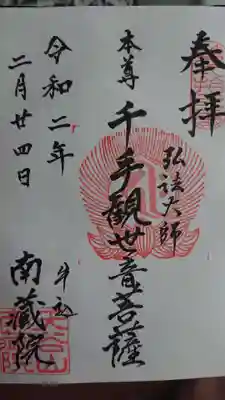 奉拝
弘法大師
本尊 千手観世音菩薩
令和二年
二月廿四日
牛込
南蔵院